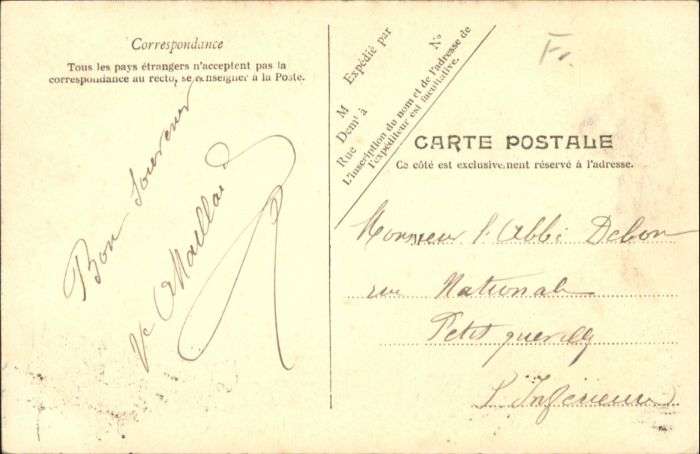 Correspondance
Tous les pays étrangers n'acceptent pas la
correspondance au recto, se renseigner à la Poste.
Bon Souvenir
Vᵉ Maillard
Expédié par
M
Demᵗ à
Rue
N°
L'inscription du nom et de l'adresse de
l'expéditeur est facultative.
Fr.
CARTE POSTALE
Ce côté est exclusivement réservé à l'adresse.
Monsieur l'Abbé Debon
rue Nationale
Petit quevilly
S Inférieure